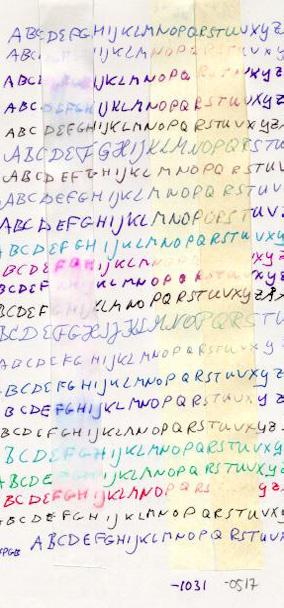 ABCDEFGHIJKLMNOPQRSTUVXYZ
ABC HIJKLMNOPQRSTUVXYZ
ABC IJKLMNOPQ RSTUVXYZ
ABC DEFGHIJKLMNOPQRSTUVXYZ
ABC DEFGHIJKLMNOPQRSTUVXYZ
ABCDEFGHIJKLMNOPQRSTU
ABCDEFGHIJKLMNOPQ RSTUV
ABCDEFGHIJKLMNOPQRSTUV
ABCDEFGHIJKLMNOPQRSTUV
BCDEFGHIJKLMNOPQRSTUVXYZ
BCDEFGHIJKLMNOPQRSTUVXYZ
BCDEF HIJKLMNOPQRSTUVXYZ
BCDEF IJKLMNOPQRSTUVXYZ
BCDEFGHIJKLMNOPQRS
ABCDEFGHIJKLMNOPQRSTUVXYZ
BCDEFGHIJKLMNOPQRSTUVXYZ
BCDEFGHIJKLMNOPQRSTUVXYZ
BCDEFGHIJKLMNOPQRSTUVXYZ
BCDEFGHIJKLMNOPQRSTUVXYZ
ABCDEFGHIJKLMNOPQRSTUVXYZ
BCDEFGHIJKLMNOP YZ
ABCDEFGHIJKLMNOPQRSTUVXYZ
ABCDEFGHIJKLMNOPQRSTUV
-1031 -0517